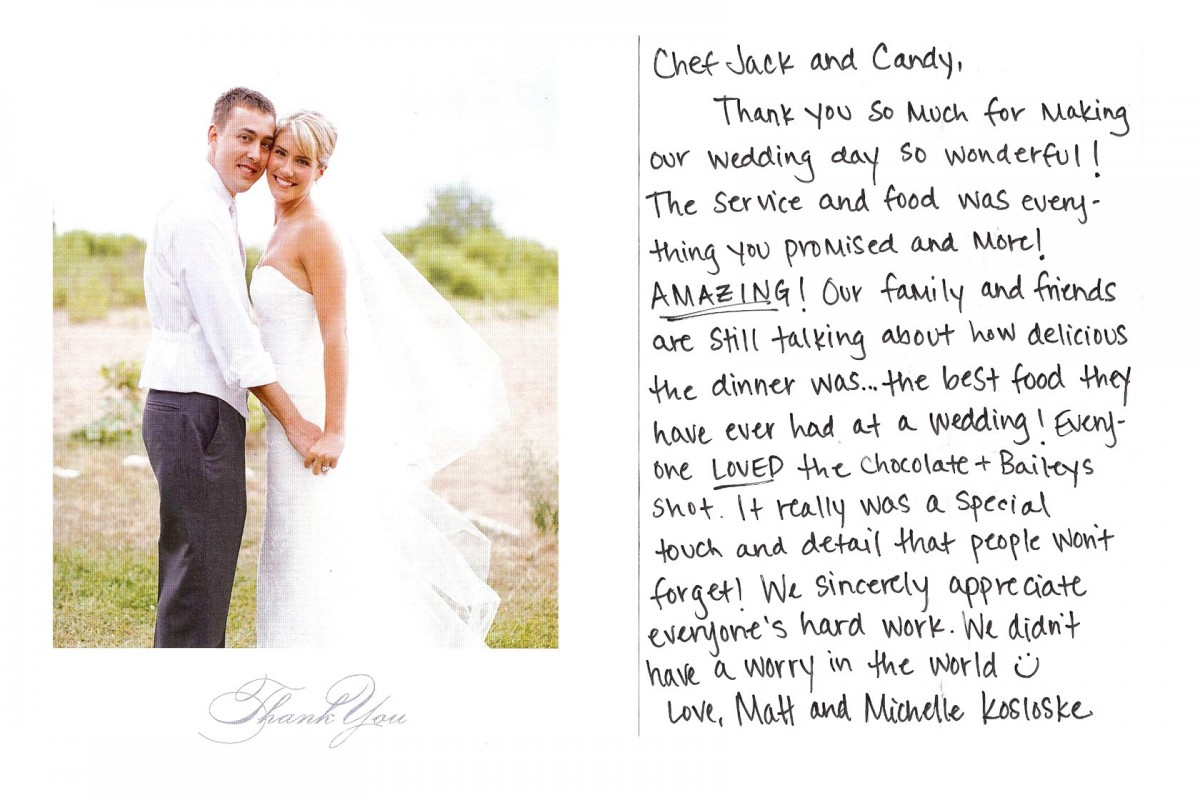 Thank You
Chef Jack and Candy,
Thank you so much for making
our wedding day so wonderful!
The service and food was every-
thing you promised and more!
AMAZING! Our family and friends
are still talking about how delicious
the dinner was...the best food they
have ever had at a wedding! Every-
one LOVED the Chocolate + Baileys
shot. It really was a special
touch and detail that people won't
forget! We sincerely appreciate
everyone's hard work. We didn't
have a worry in the world ☺
Love, Matt and Michelle Kosloske